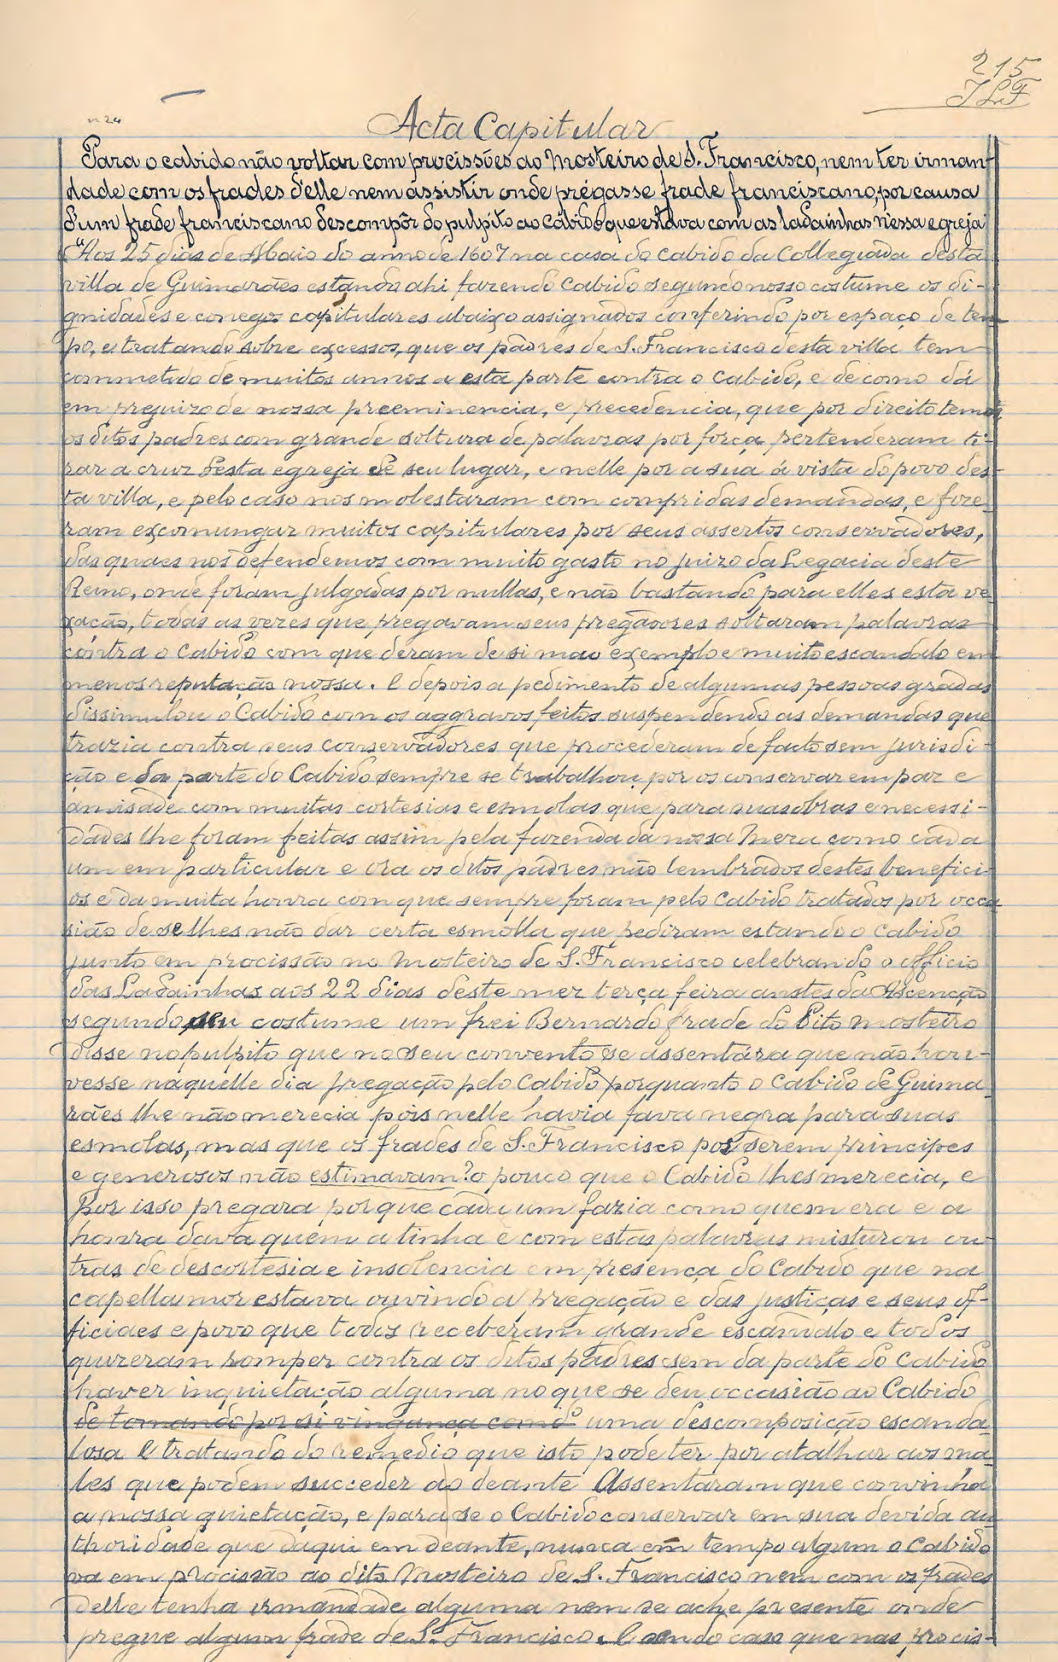 215
JLF
nº 24
Acta Capitular
Para o cabido não voltar com procissões ao Mosteiro de S. Francisco, nem ter irman-
dade com os frades delle nem assistir onde prégasse frade franciscano, por causa
d'um frade franciscano descompôr do pulpito ao cabido que estava com as ladainhas nessa egreja
"Aos 25 dias de Maio do anno de 1607 na casa do cabido da Collegiada desta
villa de Guimarães estando ahi fazendo Cabido segundo nosso costume os di-
gnidades e conegos capitulares abaixo assignados conferindo por espaço de tem-
po, e tratando sobre excessos, que os padres de S. Francisco desta villa tem
commetido de muitos annos a esta parte contra o Cabido, e de como dá
em prejuizo de nossa preeminencia, e precedencia, que por direito temos
os ditos padres com grande soltura de palavras por força pertenderam ti-
rar a cruz desta egreja de seu lugar, e nelle por a sua á vista do povo des-
ta villa, e pelo caso nos molestaram com compridas demandas, e fize-
ram excomungar muitos capitulares por seus assertos conservadores,
das quaes nos defendemos com muito gasto no juizo da Legacia deste
Reino, onde foram julgadas por nullas, e não bastando para elles esta ve-
xação, todas as vezes que pregavam seus pregadores soltaram palavras
contra o Cabido com que deram de si mao exemplo e muito escandalo em
menos reputação nossa. E depois a pedimento de algumas pessoas gradas
dissimulou o Cabido com os aggravos feitos suspendendo as demandas que
trazia contra seus conservadores que procederam de facto sem jurisdi-
ção e da parte do Cabido sempre se trabalhou por os conservar em paz e
amisade com muitas cortesias e esmolas que para suas obras e necessi-
dades lhe foram feitas assim pela fazenda da nossa Meza como cada
um em particular e ora os ditos padres não lembrados destes benefici-
os e da muita honra com que sempre foram pelo Cabido tratados por occa
sião de se lhes não dar certa esmolla que pediram estando o Cabido
junto em procissão no Mosteiro de S. Francisco celebrando o officio
das Ladainhas aos 22 dias deste mez terça feira anstes da Ascenção
segundo seu costume um frei Bernardo frade do dito mosteiro
disse no pulpito que no seu convento se assentára que não hou-
vesse naquelle dia pregação pelo Cabido porquanto o Cabido de Guima
rães lhe não merecia pois nelle havia fava negra para suas
esmolas, mas que os frades de S. Francisco por serem principes
e generosos não estimavam? o pouco que o Cabido lhes merecia, e
por isso pregara porque cada um fazia como quem era e a
honra dava quem a tinha e com estas palavras misturou ou-
tras de descortesia e insolencia em presença do Cabido que na
capella mor estava ouvindo a pregação e das justiças e seus of-
ficiaes e povo que todos receberam grande escandalo e todos
quizeram romper contra os ditos padres sem da parte do Cabido
haver inquietação alguma no que se deu occasião ao Cabido
de tomando por si vingança como uma descomposição escanda
losa E tratando do remedio que isto pode ter por atalhar aos ma-
les que podem succeder ao deante Assentaram que convinha
a nossa quietação, e para se o Cabido conservar em sua devida au
thoridade que daqui em deante, nunca em tempo algum o Cabido
va em procissão ao dito Mosteiro de S. Francisco nem com os frades
delle tenha irmandade alguma nem se ache presente onde
pregue algum frade de S. Francisco. E sendo caso que nas procis-